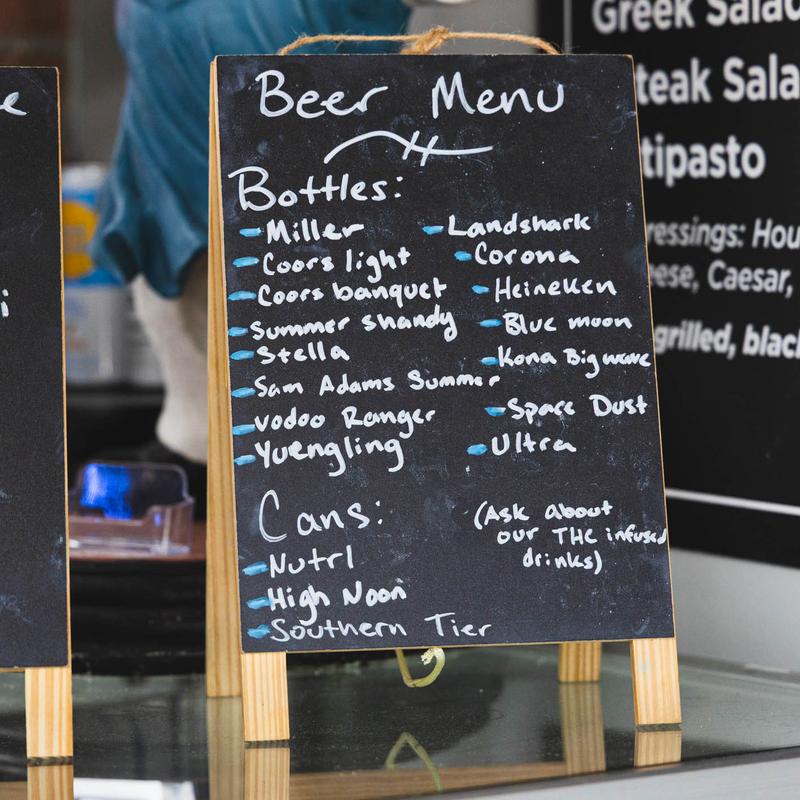 Beer Menu
Bottles:
Miller
Coors light
Coors banquet
Summer shandy
Stella
Sam Adams Summer
vodoo Ranger
Yuengling
Landshark
Corona
Heineken
Blue moon
Kona Big wave
Space Dust
Ultra
Cans:
Nutrl
High Noon
Southern Tier
(Ask about
our THC infused
drinks)
Greek Salad
teak Sala
tipasto
ressings: Hou
ese, Caesar,
grilled, black